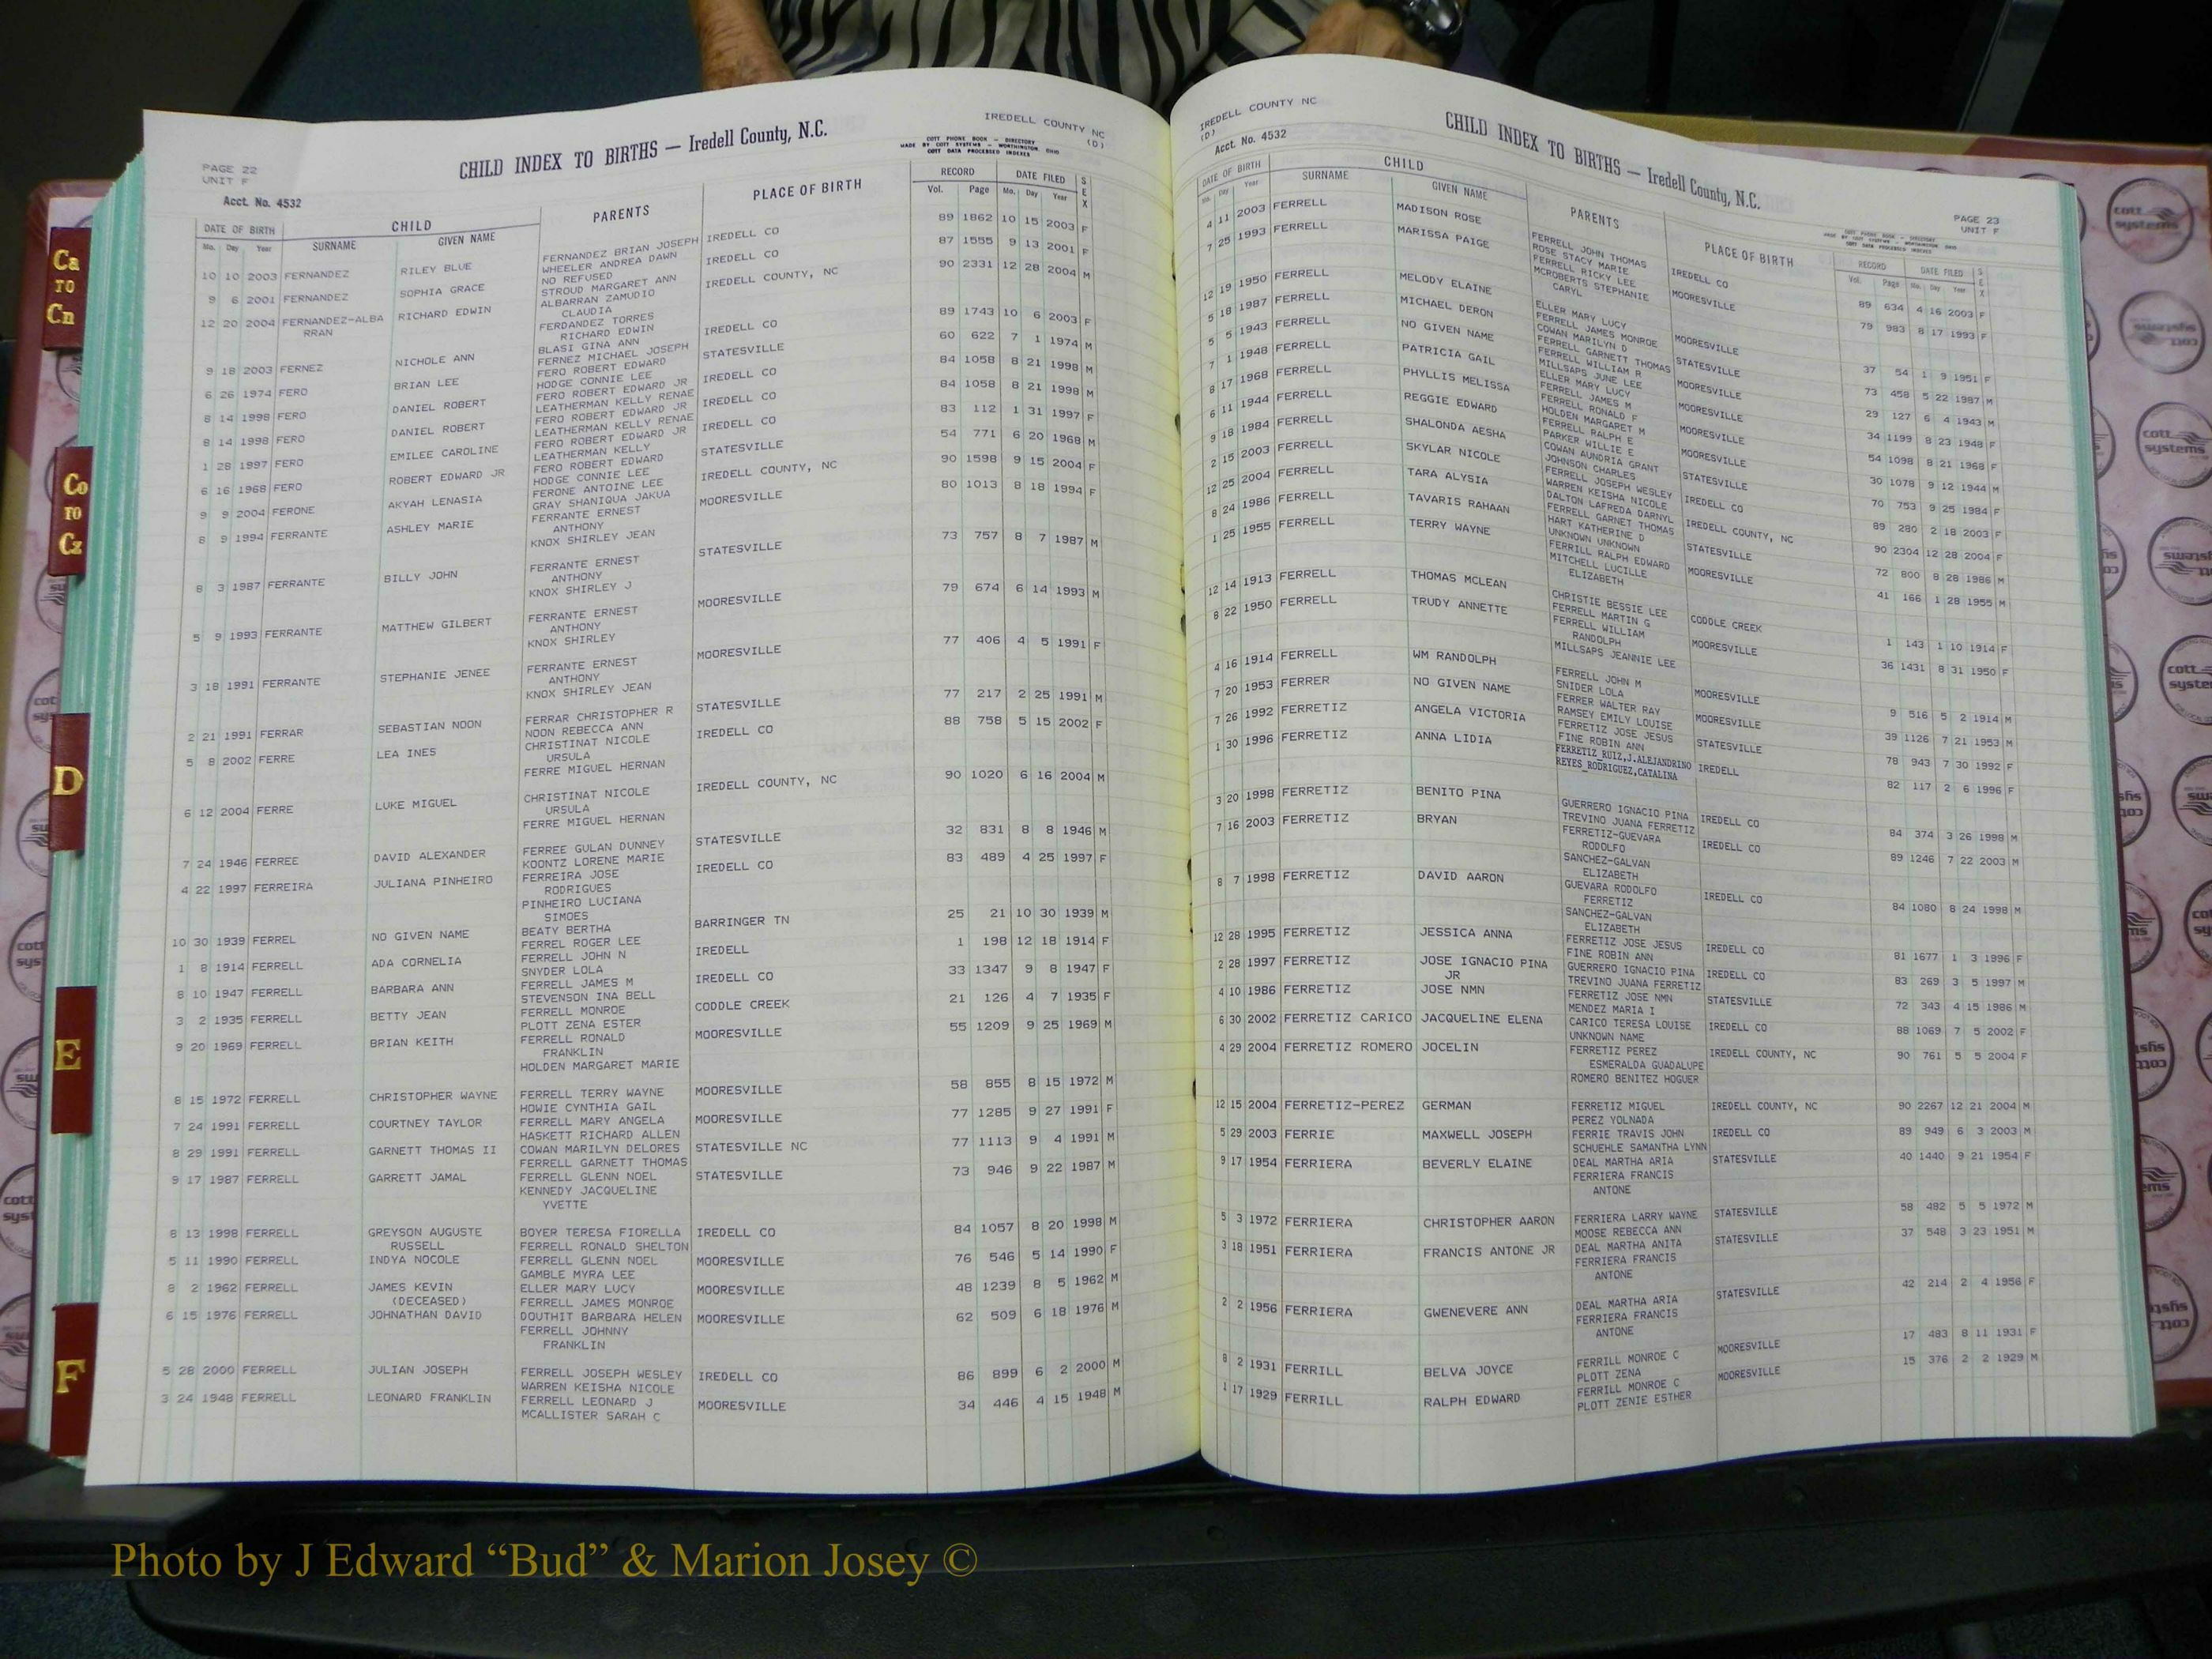 PAGE 22
UNIT F
Acct. No. 4532
CHILD INDEX TO BIRTHS — Iredell County, N.C.
IREDELL COUNTY NC
(D)
COTT PHONE BOOK — DIRECTORY
MADE BY COTT SYSTEMS — WORTHINGTON, Ohio
COTT DATA PROCESSED INDEXES
DATE OF BIRTH CHILD PARENTS PLACE OF BIRTH RECORD DATE FILED SEX
Mo. Day Year SURNAME GIVEN NAME Vol. Page Mo. Day Year
10 10 2003 FERNANDEZ RILEY BLUE FERNANDEZ BRIAN JOSEPH IREDELL CO 89 1862 10 15 2003 F
WHEELER ANDREA DAWN
9 6 2001 FERNANDEZ SOPHIA GRACE NO REFUSED IREDELL CO 87 1555 9 13 2001 F
STROUD MARGARET ANN
12 20 2004 FERNANDEZ-ALBA RICHARD EDWIN ALBARRAN ZAMUDIO IREDELL COUNTY, NC 90 2331 12 28 2004 M
RRAN CLAUDIA
FERDANDEZ TORRES
RICHARD EDWIN
9 18 2003 FERNEZ NICHOLE ANN BLASI GINA ANN IREDELL CO 89 1743 10 6 2003 F
FERNEZ MICHAEL JOSEPH
6 26 1974 FERO BRIAN LEE FERO ROBERT EDWARD STATESVILLE 60 622 7 1 1974 M
HODGE CONNIE LEE
8 14 1998 FERO DANIEL ROBERT FERO ROBERT EDWARD JR IREDELL CO 84 1058 8 21 1998 M
LEATHERMAN KELLY RENAE
8 14 1998 FERO DANIEL ROBERT FERO ROBERT EDWARD JR IREDELL CO 84 1058 8 21 1998 M
LEATHERMAN KELLY RENAE
1 28 1997 FERO EMILEE CAROLINE FERO ROBERT EDWARD JR IREDELL CO 83 112 1 31 1997 F
LEATHERMAN KELLY
6 16 1968 FERO ROBERT EDWARD JR FERO ROBERT EDWARD STATESVILLE 54 771 6 20 1968 M
HODGE CONNIE LEE
9 9 2004 FERONE AKYAH LENASIA FERONE ANTOINE LEE IREDELL COUNTY, NC 90 1598 9 15 2004 F
GRAY SHANIQUA JAKUA
8 9 1994 FERRANTE ASHLEY MARIE FERRANTE ERNEST MOORESVILLE 80 1013 8 18 1994 F
ANTHONY
KNOX SHIRLEY JEAN
8 3 1987 FERRANTE BILLY JOHN FERRANTE ERNEST STATESVILLE 73 757 8 7 1987 M
ANTHONY
KNOX SHIRLEY J
5 9 1993 FERRANTE MATTHEW GILBERT FERRANTE ERNEST MOORESVILLE 79 674 6 14 1993 M
ANTHONY
KNOX SHIRLEY
3 18 1991 FERRANTE STEPHANIE JENEE FERRANTE ERNEST MOORESVILLE 77 406 4 5 1991 F
ANTHONY
KNOX SHIRLEY JEAN
2 21 1991 FERRAR SEBASTIAN NOON FERRAR CHRISTOPHER R STATESVILLE 77 217 2 25 1991 M
NOON REBECCA ANN
5 8 2002 FERRE LEA INES CHRISTINAT NICOLE IREDELL CO 88 758 5 15 2002 F
URSULA
FERRE MIGUEL HERNAN
6 12 2004 FERRE LUKE MIGUEL CHRISTINAT NICOLE IREDELL COUNTY, NC 90 1020 6 16 2004 M
URSULA
FERRE MIGUEL HERNAN
7 24 1946 FERREE DAVID ALEXANDER FERREE GULAN DUNNEY STATESVILLE 32 831 8 8 1946 M
KOONTZ LORENE MARIE
4 22 1997 FERREIRA JULIANA PINHEIRO FERREIRA JOSE IREDELL CO 83 489 4 25 1997 F
RODRIGUES
PINHEIRO LUCIANA
SIMOES
10 30 1939 FERREL NO GIVEN NAME BEATY BERTHA BARRINGER TN 25 21 10 30 1939 M
FERREL ROGER LEE
1 8 1914 FERRELL ADA CORNELIA FERRELL JOHN N IREDELL 1 198 12 18 1914 F
SNYDER LOLA
8 10 1947 FERRELL BARBARA ANN FERRELL JAMES M IREDELL CO 33 1347 9 8 1947 F
STEVENSON INA BELL
3 2 1935 FERRELL BETTY JEAN FERRELL MONROE CODDLE CREEK 21 126 4 7 1935 F
PLOTT ZENA ESTER
9 20 1969 FERRELL BRIAN KEITH FERRELL RONALD MOORESVILLE 55 1209 9 25 1969 M
FRANKLIN
HOLDEN MARGARET MARIE
8 15 1972 FERRELL CHRISTOPHER WAYNE FERRELL TERRY WAYNE MOORESVILLE 58 855 8 15 1972 M
HOWIE CYNTHIA GAIL
7 24 1991 FERRELL COURTNEY TAYLOR FERRELL MARY ANGELA MOORESVILLE 77 1285 9 27 1991 F
HASKETT RICHARD ALLEN
8 29 1991 FERRELL GARNETT THOMAS II COWAN MARILYN DELORES STATESVILLE NC 77 1113 9 4 1991 M
FERRELL GARNETT THOMAS
9 17 1987 FERRELL GARRETT JAMAL FERRELL GLENN NOEL STATESVILLE 73 946 9 22 1987 M
KENNEDY JACQUELINE
YVETTE
8 13 1998 FERRELL GREYSON AUGUSTE BOYER TERESA FIORELLA IREDELL CO 84 1057 8 20 1998 M
RUSSELL FERRELL RONALD SHELTON
5 11 1990 FERRELL INDYA NOCOLE FERRELL GLENN NOEL MOORESVILLE 76 546 5 14 1990 F
GAMBLE MYRA LEE
8 2 1962 FERRELL JAMES KEVIN ELLER MARY LUCY MOORESVILLE 48 1239 8 5 1962 M
(DECEASED) FERRELL JAMES MONROE
6 15 1976 FERRELL JOHNATHAN DAVID DOUTHIT BARBARA HELEN MOORESVILLE 62 509 6 18 1976 M
FERRELL JOHNNY
FRANKLIN
5 28 2000 FERRELL JULIAN JOSEPH FERRELL JOSEPH WESLEY IREDELL CO 86 899 6 2 2000 M
WARREN KEISHA NICOLE
3 24 1948 FERRELL LEONARD FRANKLIN FERRELL LEONARD J MOORESVILLE 34 446 4 15 1948 M
MCALLISTER SARAH C
IREDELL COUNTY NC
(D)
Acct. No. 4532
CHILD INDEX TO BIRTHS — Iredell County, N.C.
PAGE 23
UNIT F
DATE OF BIRTH CHILD PARENTS PLACE OF BIRTH RECORD DATE FILED SEX
Mo. Day Year SURNAME GIVEN NAME Vol. Page Mo. Day Year
4 11 2003 FERRELL MADISON ROSE FERRELL JOHN THOMAS IREDELL CO 89 634 4 16 2003 F
ROSE STACY MARIE
7 25 1993 FERRELL MARISSA PAIGE FERRELL RICKY LEE MOORESVILLE 79 983 8 17 1993 F
MCROBERTS STEPHANIE
CARYL
12 19 1950 FERRELL MELODY ELAINE ELLER MARY LUCY MOORESVILLE 37 54 1 9 1951 F
FERRELL JAMES MONROE
5 18 1987 FERRELL MICHAEL DERON COWAN MARILYN D STATESVILLE 73 458 5 22 1987 M
FERRELL GARNETT THOMAS
5 5 1943 FERRELL NO GIVEN NAME FERRELL WILLIAM R MOORESVILLE 29 127 6 4 1943 M
MILLSAPS JUNE LEE
7 1 1948 FERRELL PATRICIA GAIL ELLER MARY LUCY MOORESVILLE 34 1199 8 23 1948 F
FERRELL JAMES M
8 17 1968 FERRELL PHYLLIS MELISSA FERRELL RONALD F MOORESVILLE 54 1098 8 21 1968 F
HOLDEN MARGARET M
6 11 1944 FERRELL REGGIE EDWARD FERRELL RALPH E MOORESVILLE 30 1078 9 12 1944 M
PARKER WILLIE E
9 18 1984 FERRELL SHALONDA AESHA COWAN AUNDRIA GRANT STATESVILLE 70 753 9 25 1984 F
JOHNSON CHARLES
2 15 2003 FERRELL SKYLAR NICOLE FERRELL JOSEPH WESLEY IREDELL CO 89 280 2 18 2003 F
WARREN KEISHA NICOLE
12 25 2004 FERRELL TARA ALYSIA DALTON LAFREDA DARNYL IREDELL COUNTY, NC 90 2304 12 28 2004 F
FERRELL GARNET THOMAS
8 24 1986 FERRELL TAVARIS RAHAAN HART KATHERINE D STATESVILLE 72 800 8 28 1986 M
UNKNOWN UNKNOWN
1 25 1955 FERRELL TERRY WAYNE FERRILL RALPH EDWARD MOORESVILLE 41 166 1 28 1955 M
MITCHELL LUCILLE
ELIZABETH
12 14 1913 FERRELL THOMAS MCLEAN CHRISTIE BESSIE LEE CODDLE CREEK 1 143 1 10 1914 F
FERRELL MARTIN G
8 22 1950 FERRELL TRUDY ANNETTE FERRELL WILLIAM MOORESVILLE 36 1431 8 31 1950 F
RANDOLPH
MILLSAPS JEANNIE LEE
4 16 1914 FERRELL WM RANDOLPH FERRELL JOHN M MOORESVILLE 9 516 5 2 1914 M
SNIDER LOLA
7 20 1953 FERRER NO GIVEN NAME FERRER WALTER RAY MOORESVILLE 39 1126 7 21 1953 M
RAMSEY EMILY LOUISE
7 26 1992 FERRETIZ ANGELA VICTORIA FERRETIZ JOSE JESUS STATESVILLE 78 943 7 30 1992 F
FINE ROBIN ANN
1 30 1996 FERRETIZ ANNA LIDIA FERRETIZ_RUIZ,J.ALEJANDRINO IREDELL 82 117 2 6 1996 F
REYES_RODRIGUEZ,CATALINA
3 20 1998 FERRETIZ BENITO PINA GUERRERO IGNACIO PINA IREDELL CO 84 374 3 26 1998 M
TREVINO JUANA FERRETIZ
7 16 2003 FERRETIZ BRYAN FERRETIZ-GUEVARA IREDELL CO 89 1246 7 22 2003 M
RODOLFO
SANCHEZ-GALVAN
ELIZABETH
8 7 1998 FERRETIZ DAVID AARON GUEVARA RODOLFO IREDELL CO 84 1080 8 24 1998 M
FERRETIZ
SANCHEZ-GALVAN
ELIZABETH
12 28 1995 FERRETIZ JESSICA ANNA FERRETIZ JOSE JESUS IREDELL CO 81 1677 1 3 1996 F
FINE ROBIN ANN
2 28 1997 FERRETIZ JOSE IGNACIO PINA GUERRERO IGNACIO PINA IREDELL CO 83 269 3 5 1997 M
JR TREVINO JUANA FERRETIZ
4 10 1986 FERRETIZ JOSE NMN FERRETIZ JOSE NMN STATESVILLE 72 343 4 15 1986 M
MENDEZ MARIA I
6 30 2002 FERRETIZ CARICO JACQUELINE ELENA CARICO TERESA LOUISE IREDELL CO 88 1069 7 5 2002 F
UNKNOWN NAME
4 29 2004 FERRETIZ ROMERO JOCELIN FERRETIZ PEREZ IREDELL COUNTY, NC 90 761 5 5 2004 F
ESMERALDA GUADALUPE
ROMERO BENITEZ HOGUER
12 15 2004 FERRETIZ-PEREZ GERMAN FERRETIZ MIGUEL IREDELL COUNTY, NC 90 2267 12 21 2004 M
PEREZ YOLNADA
5 29 2003 FERRIE MAXWELL JOSEPH FERRIE TRAVIS JOHN IREDELL CO 89 949 6 3 2003 M
SCHUEHLE SAMANTHA LYNN
9 17 1954 FERRIERA BEVERLY ELAINE DEAL MARTHA ARIA STATESVILLE 40 1440 9 21 1954 F
FERRIERA FRANCIS
ANTONE
5 3 1972 FERRIERA CHRISTOPHER AARON FERRIERA LARRY WAYNE STATESVILLE 58 482 5 5 1972 M
MOOSE REBECCA ANN
3 18 1951 FERRIERA FRANCIS ANTONE JR DEAL MARTHA ANITA STATESVILLE 37 548 3 23 1951 M
FERRIERA FRANCIS
ANTONE
2 2 1956 FERRIERA GWENEVERE ANN DEAL MARTHA ARIA STATESVILLE 42 214 2 4 1956 F
FERRIERA FRANCIS
ANTONE
8 2 1931 FERRILL BELVA JOYCE FERRILL MONROE C MOORESVILLE 17 483 8 11 1931 F
PLOTT ZENA
1 17 1929 FERRILL RALPH EDWARD FERRILL MONROE C MOORESVILLE 15 376 2 2 1929 M
PLOTT ZENIE ESTHER
Ca TO Cn
Co TO Cz
D
E
F
cott systems
Photo by J Edward “Bud” & Marion Josey ©